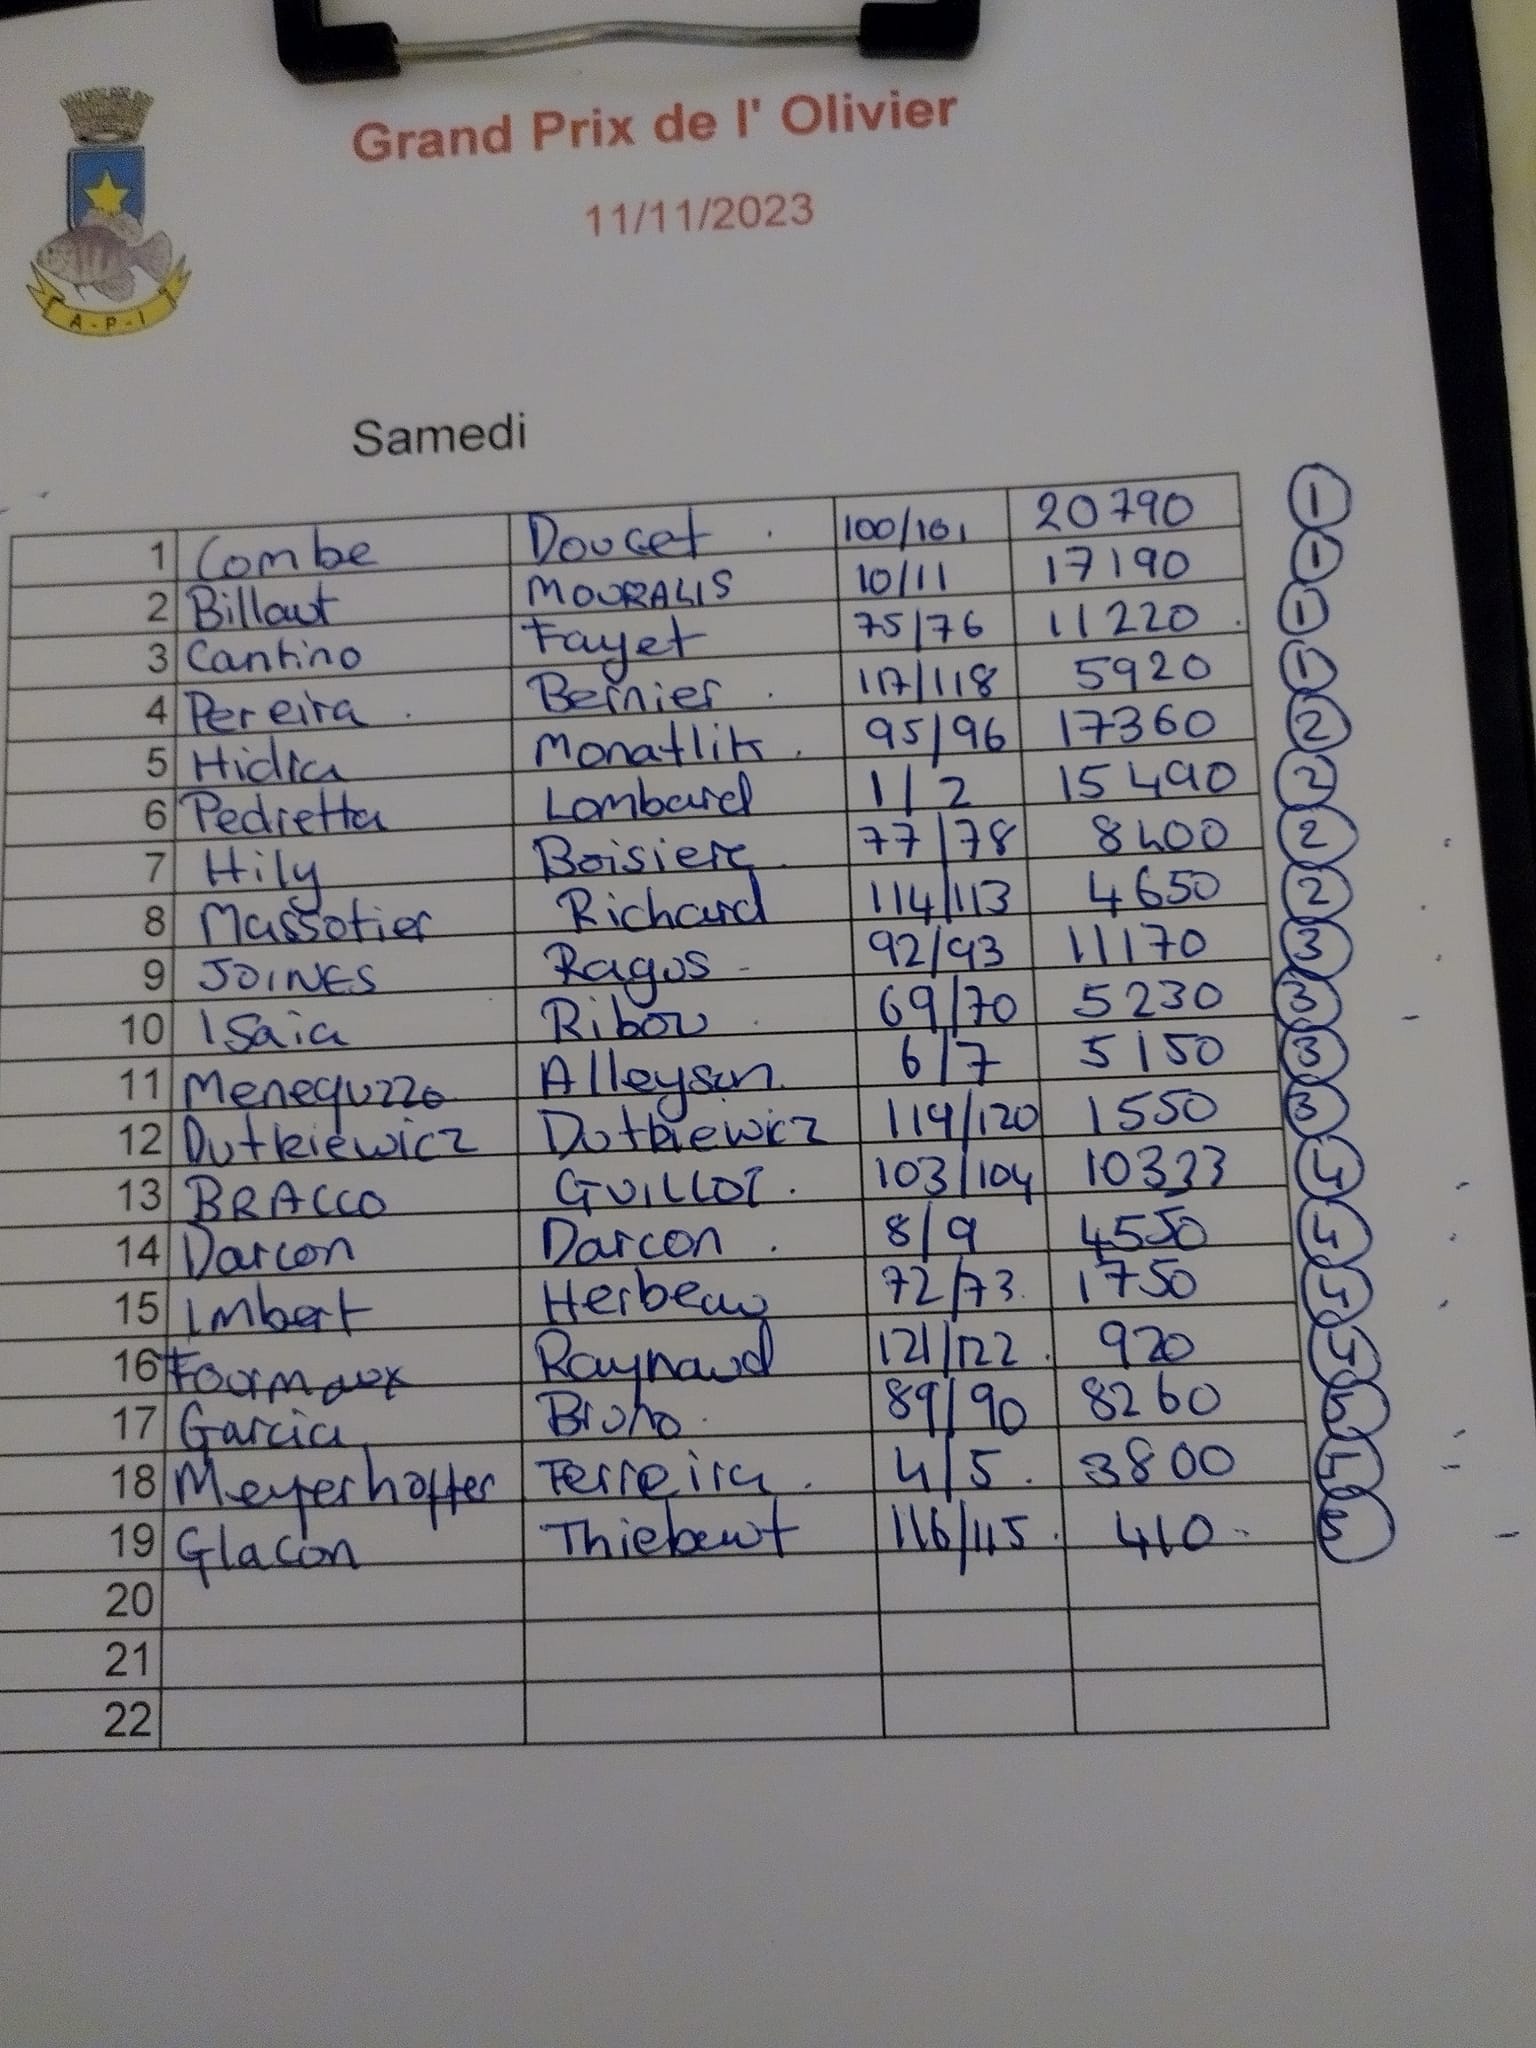 A-P-I
Grand Prix de l' Olivier
11/11/2023
Samedi
1 Combe Doucet 100/101 20790 1
2 Billaut MOURALIS 10/11 17190 1
3 Cantino Fayet 75/76 11220 1
4 Pereira Bernier 117/118 5920 1
5 Hidra Monatlik 95/96 17360 2
6 Pedretta Lombard 1/2 15490 2
7 Hily Boisiere 77/78 8400 2
8 Massotier Richard 114/113 4650 2
9 JOINES Ragos 92/93 11170 3
10 Isaia Ribou 69/70 5230 3
11 Meneguzzo Alleysson 6/7 5150 3
12 Dutkiewicz Dutkiewicz 119/120 1550 3
13 BRACCO GUILLOT 103/104 4
14 Darcon Darcon 8/9 4550 4
15 Imbert Herbeau 72/73 1750 4
16 Fourmaux Raynaud 121/122 920 4
17 Garcia Bruno 89/90 8260 5
18 Meyerhoffer Ferreira 4/5 3800 5
19 Glacon Thiebaut 116/115 410 5
20
21
22